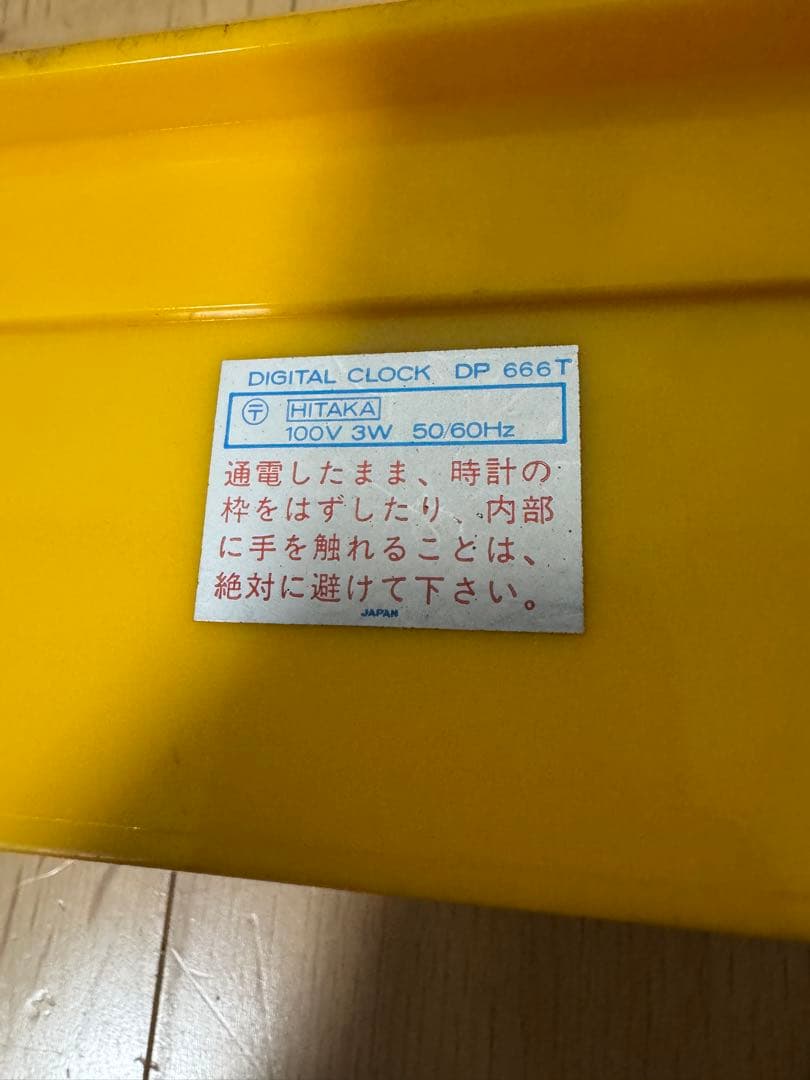 DIGITAL CLOCK DP 666T
〒 HITAKA
100V 3W 50/60Hz
通電したまま、時計の
枠をはずしたり、内部
に手を触れることは、
絶対に避けて下さい。
JAPAN